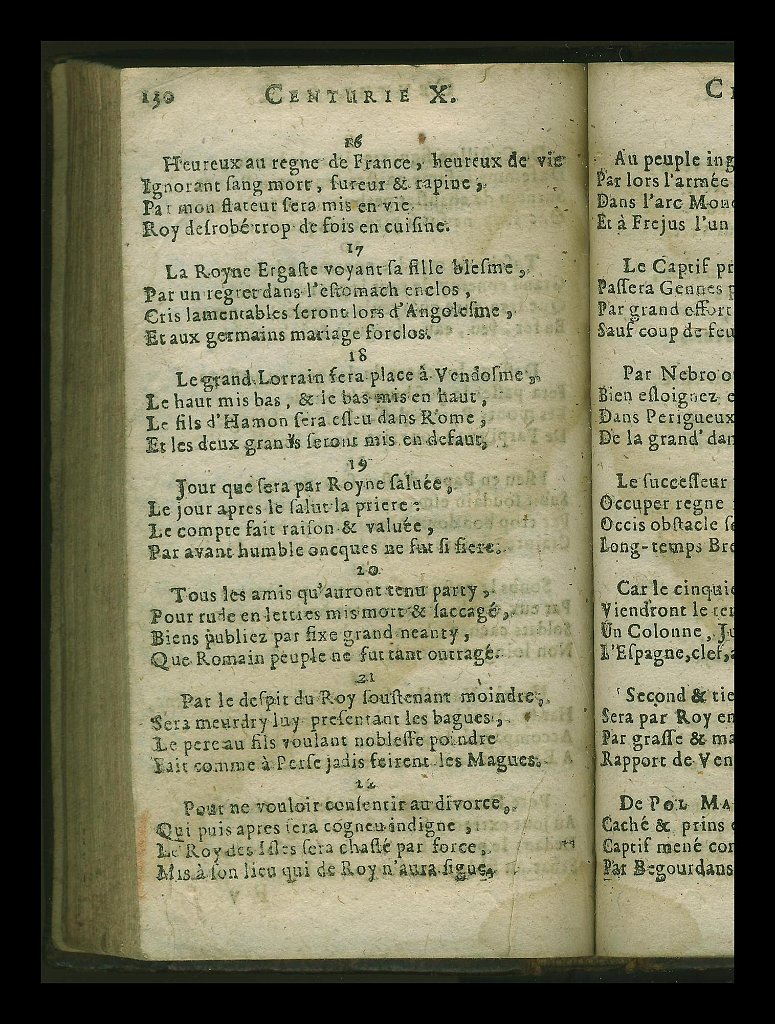 130 CENTURIE X.
16
Heureux au regne de France, heureux de vie
Ignorant ſang mort, fureur & rapine,
Par mon flateur ſera mis en vie.
Roy deſrobé trop de fois en cuiſine.
17
La Royne Ergaſte voyant ſa fille bleſme,
Par un regret dans l'eſtomach enclos,
Cris lamentables ſeront lors d'Angoleſme,
Et aux germains mariage forclos.
18
Le grand Lorrain fera place à Vendoſme,
Le haut mis bas, & le bas mis en haut,
Le fils d'Hamon ſera eſleu dans Rome,
Et les deux grands ſeront mis en defaut,
19
Jour que ſera par Royne ſaluée,
Le jour apres le ſalut la priere:
Le compte fait raiſon & valuée,
Par avant humble oncques ne fut ſi fiere.
20
Tous les amis qu'auront tenu party,
Pour rude en lettres mis mort & ſaccagé,
Biens publiez par fixe grand neanty,
Que Romain peuple ne fut tant outragé.
21
Par le deſpit du Roy ſouſtenant moindre,
Sera meurdry luy preſentant les bagues,
Le pere au fils voulant nobleſſe poindre
Fait comme à Perſe jadis feirent les Magues.
22
Pour ne vouloir conſentir au divorce,
Qui puis apres ſera cogneu indigne,
Le Roy des Iſles ſera chaſſé par force,
Mis à ſon lieu qui de Roy n'aura ſigue,
C
Au peuple ing
Par lors l'armée
Dans l'arc Mon
Et à Frejus l'un
Le Captif pr
Paſſera Gennes
Par grand effort
Sauf coup de feu
Par Nebro o
Bien eſloignez e
Dans Perigueux
De la grand' dam
Le ſucceſſeur
Occuper regne
Occis obſtacle ſe
Long-temps Bre
Car le cinquie
Viendront le
Un Colonne, Ju
L'Eſpagne, clef,
Second & tie
Sera par Roy en
Par graſſe & ma
Rapport de Ven
De POL MA
Caché & prins
Captif mené con
Par Begourdans